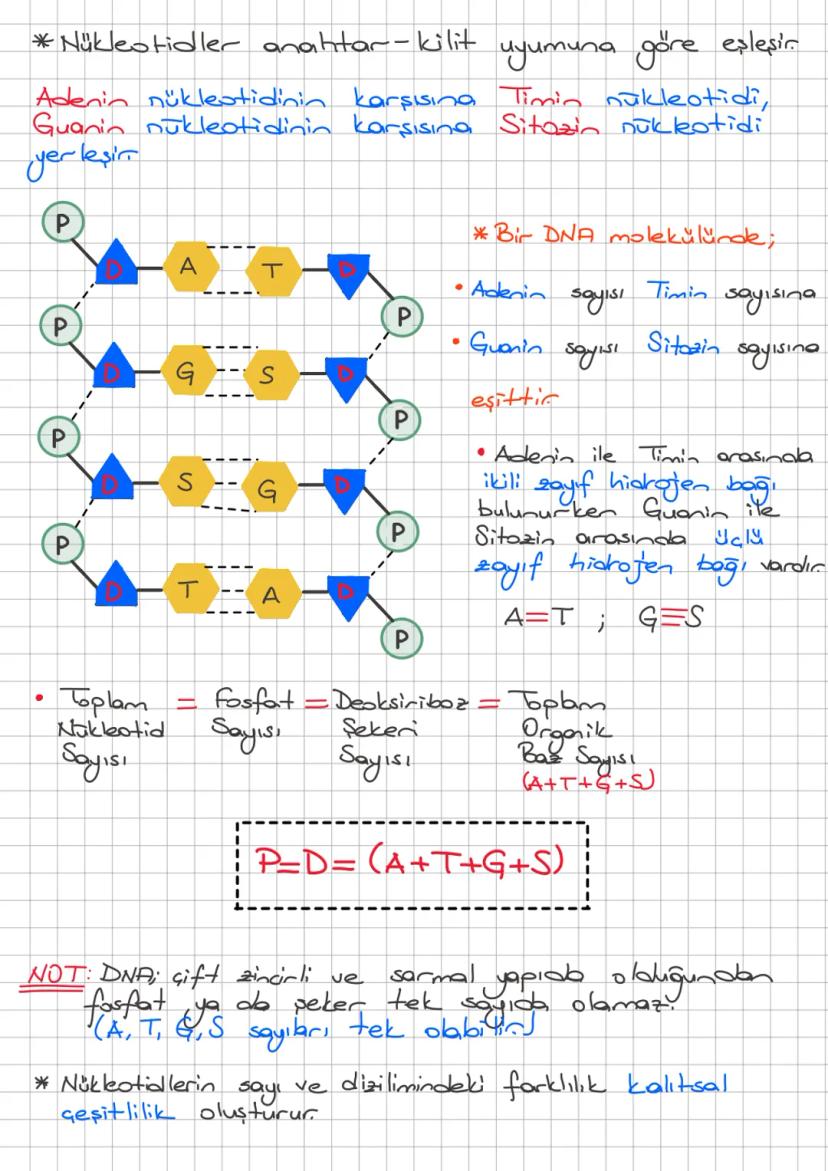 * Nükleotidler anahtar-kilit uyumuna göre eşleşir.
Adenin nükleotidinin karşısına Timin nükleotidi,
Guanin nükleotidinin karşısına Sitozin nükleotidi
yerleşir.
P
D A T D
P P
D G S D
P P
D S G D
P P
D T A D
P
* Bir DNA molekülünde;
• Adenin sayısı Timin sayısına
• Guanin sayısı Sitozin sayısına
eşittir.
• Adenin ile Timin arasında
ikili zayıf hidrojen bağı
bulunurken Guanin ile
Sitozin arasında üçlü
zayıf hidrojen bağı vardır.
A=T ; G≡S
• Toplam = Fosfat = Deoksiriboz = Toplam
Nükleotid Sayısı Şekeri Organik
Sayısı Sayısı Baz Sayısı
(A+T+G+S)
P=D= (A+T+G+S)
NOT: DNA; çift zincirli ve sarmal yapıda olduğundan
fosfat ya da şeker tek sayıda olamaz.
(A, T, G, S sayıları tek olabilir.)
* Nükleotidlerin sayı ve dizilimindeki farklılık kalıtsal
çeşitlilik oluşturur.